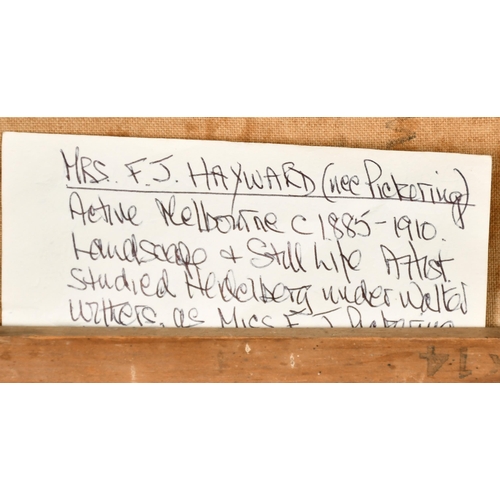 MRS. F. J. HAYWARD (nee Pickering)
Active Melbourne C 1885-1910.
Landscape + Still Life Artist
Studied Heidelberg under Walter
Withers, as Miss F J Pickering
14